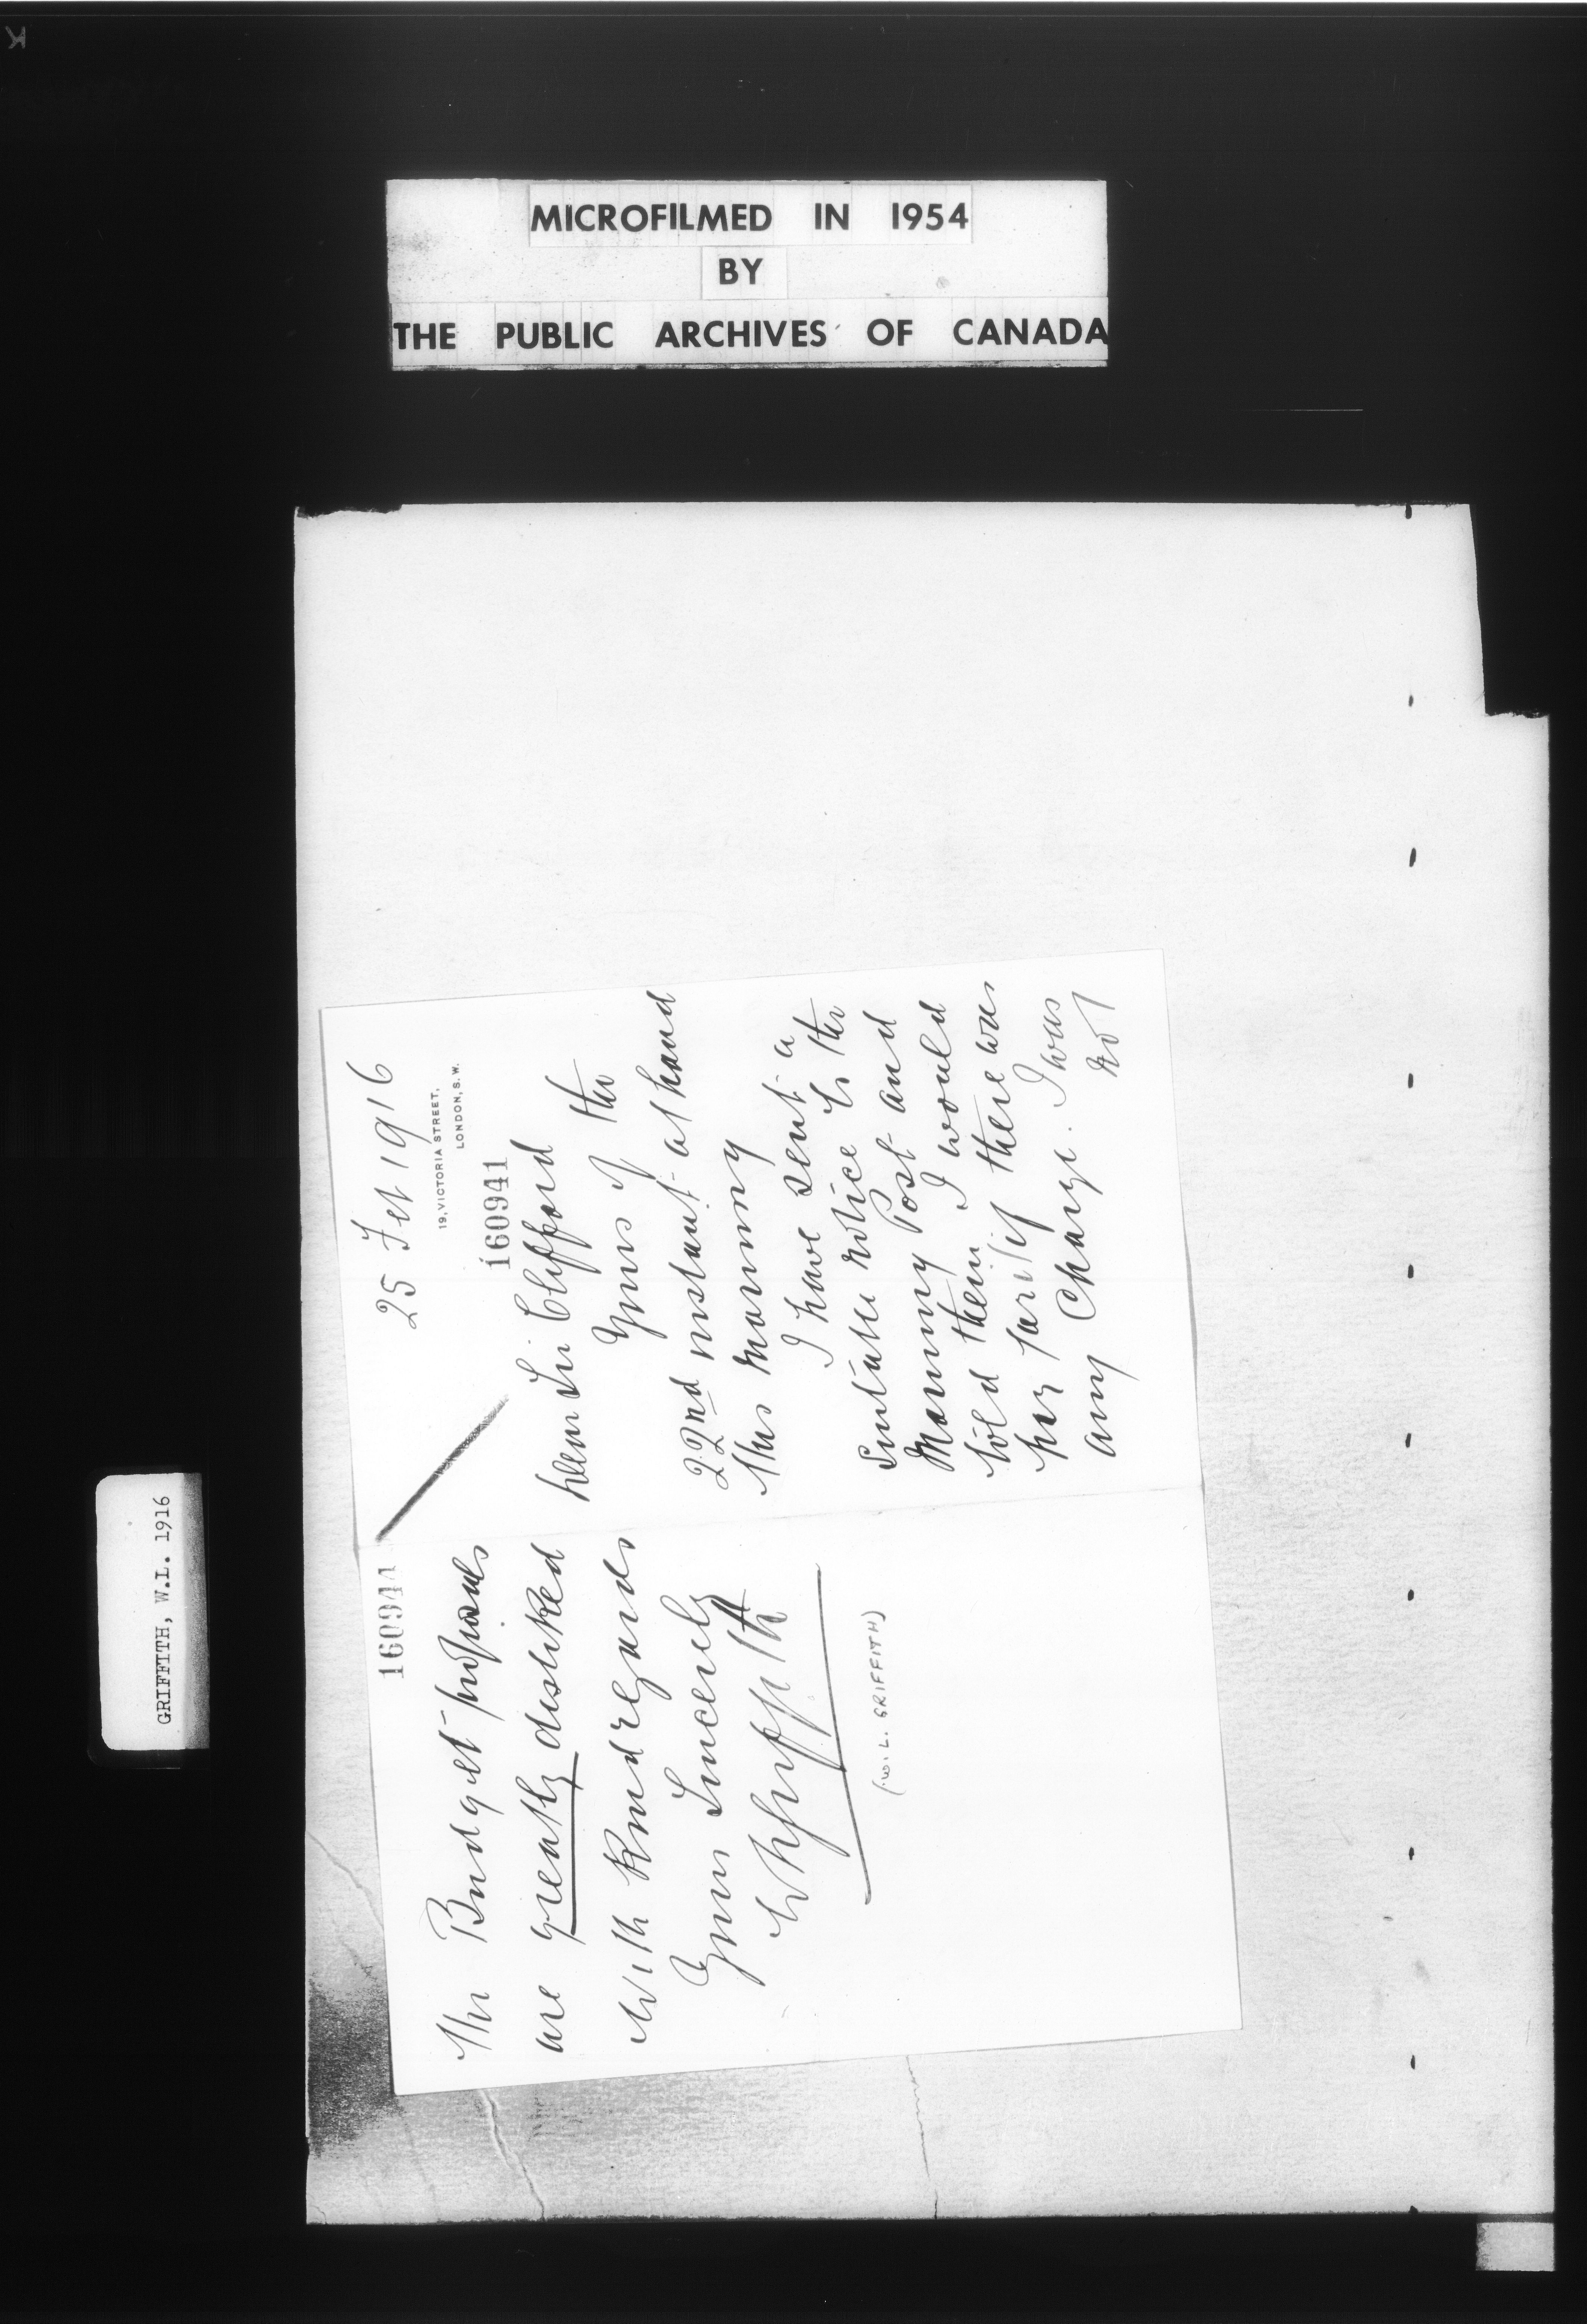 MICROFILMED IN 1954
BY
THE PUBLIC ARCHIVES OF CANADA
GRIFFITH, W.L. 1916
25 Feb 1916
19, VICTORIA STREET,
LONDON, S.W.
160941
Dear Sir Clifford
Yours of the
22nd instant at hand
this morning
I have sent a
suitable notice to the
Morning Post and
told them I would
pay for it if there was
any charge. I was
not
160944
The Budget proposals
are greatly disliked
With kind regards
Yours Sincerely
WLGriffith
(W.L. GRIFFITH)